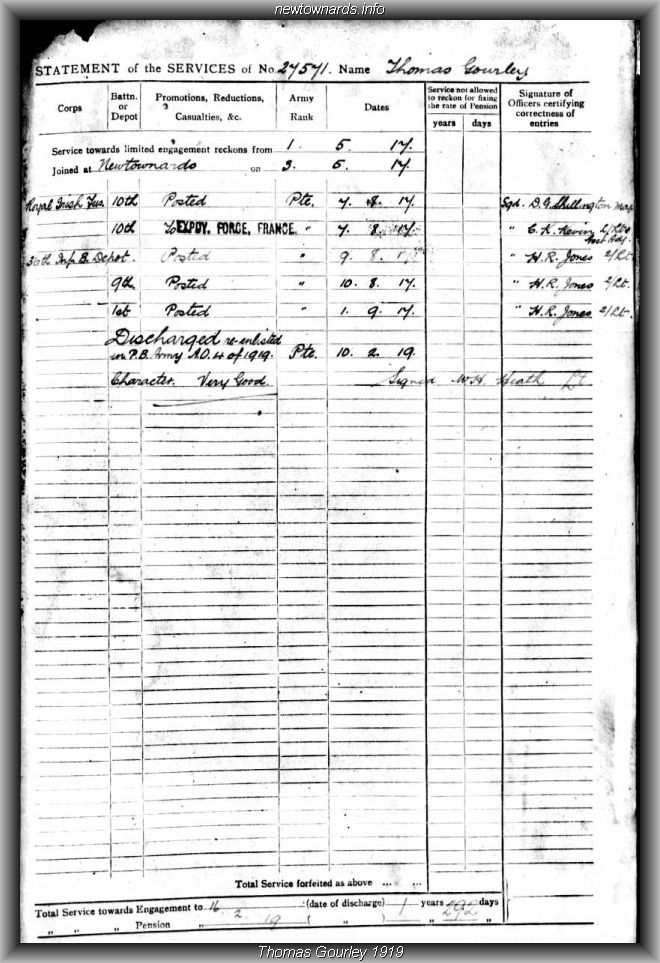 newtownards.info
STATEMENT of the SERVICES of No. 27571. Name Thomas Gourley
Corps
Battn. or Depot
Promotions, Reductions, Casualties, &c.
Army Rank
Dates
Service not allowed to reckon for fixing the rate of Pension
years days
Signature of Officers certifying correctness of entries
Service towards limited engagement reckons from 1. 5. 17.
Joined at Newtownards on 3. 5. 17.
Royal Irish Fus. 10th Posted Pte. 7. 8. 17. Sgd. D.G. Shillington Maj
10th To EXPDY. FORCE, FRANCE. " 7. 8. 17. " C. K. 2/Lt &
Asst Adj.
36th Inf. B. Depot. Posted " 9. 8. 17 " H. R. Jones 2/Lt.
9th Posted " 10. 8. 17. " H. R. Jones 2/Lt.
1st Posted " 1. 9. 17. " H. R. Jones 2/Lt.
Discharged re-enlisted
in P.B. Army A.O. 4 of 1919. Pte. 10. 2. 19.
Character. Very Good. Signed W.H. Heath Lt
Total Service forfeited as above ... ...
Total Service towards Engagement to 16 2 19 (date of discharge) 1 years 292 days
" " " Pension ( " ) " "
Thomas Gourley 1919